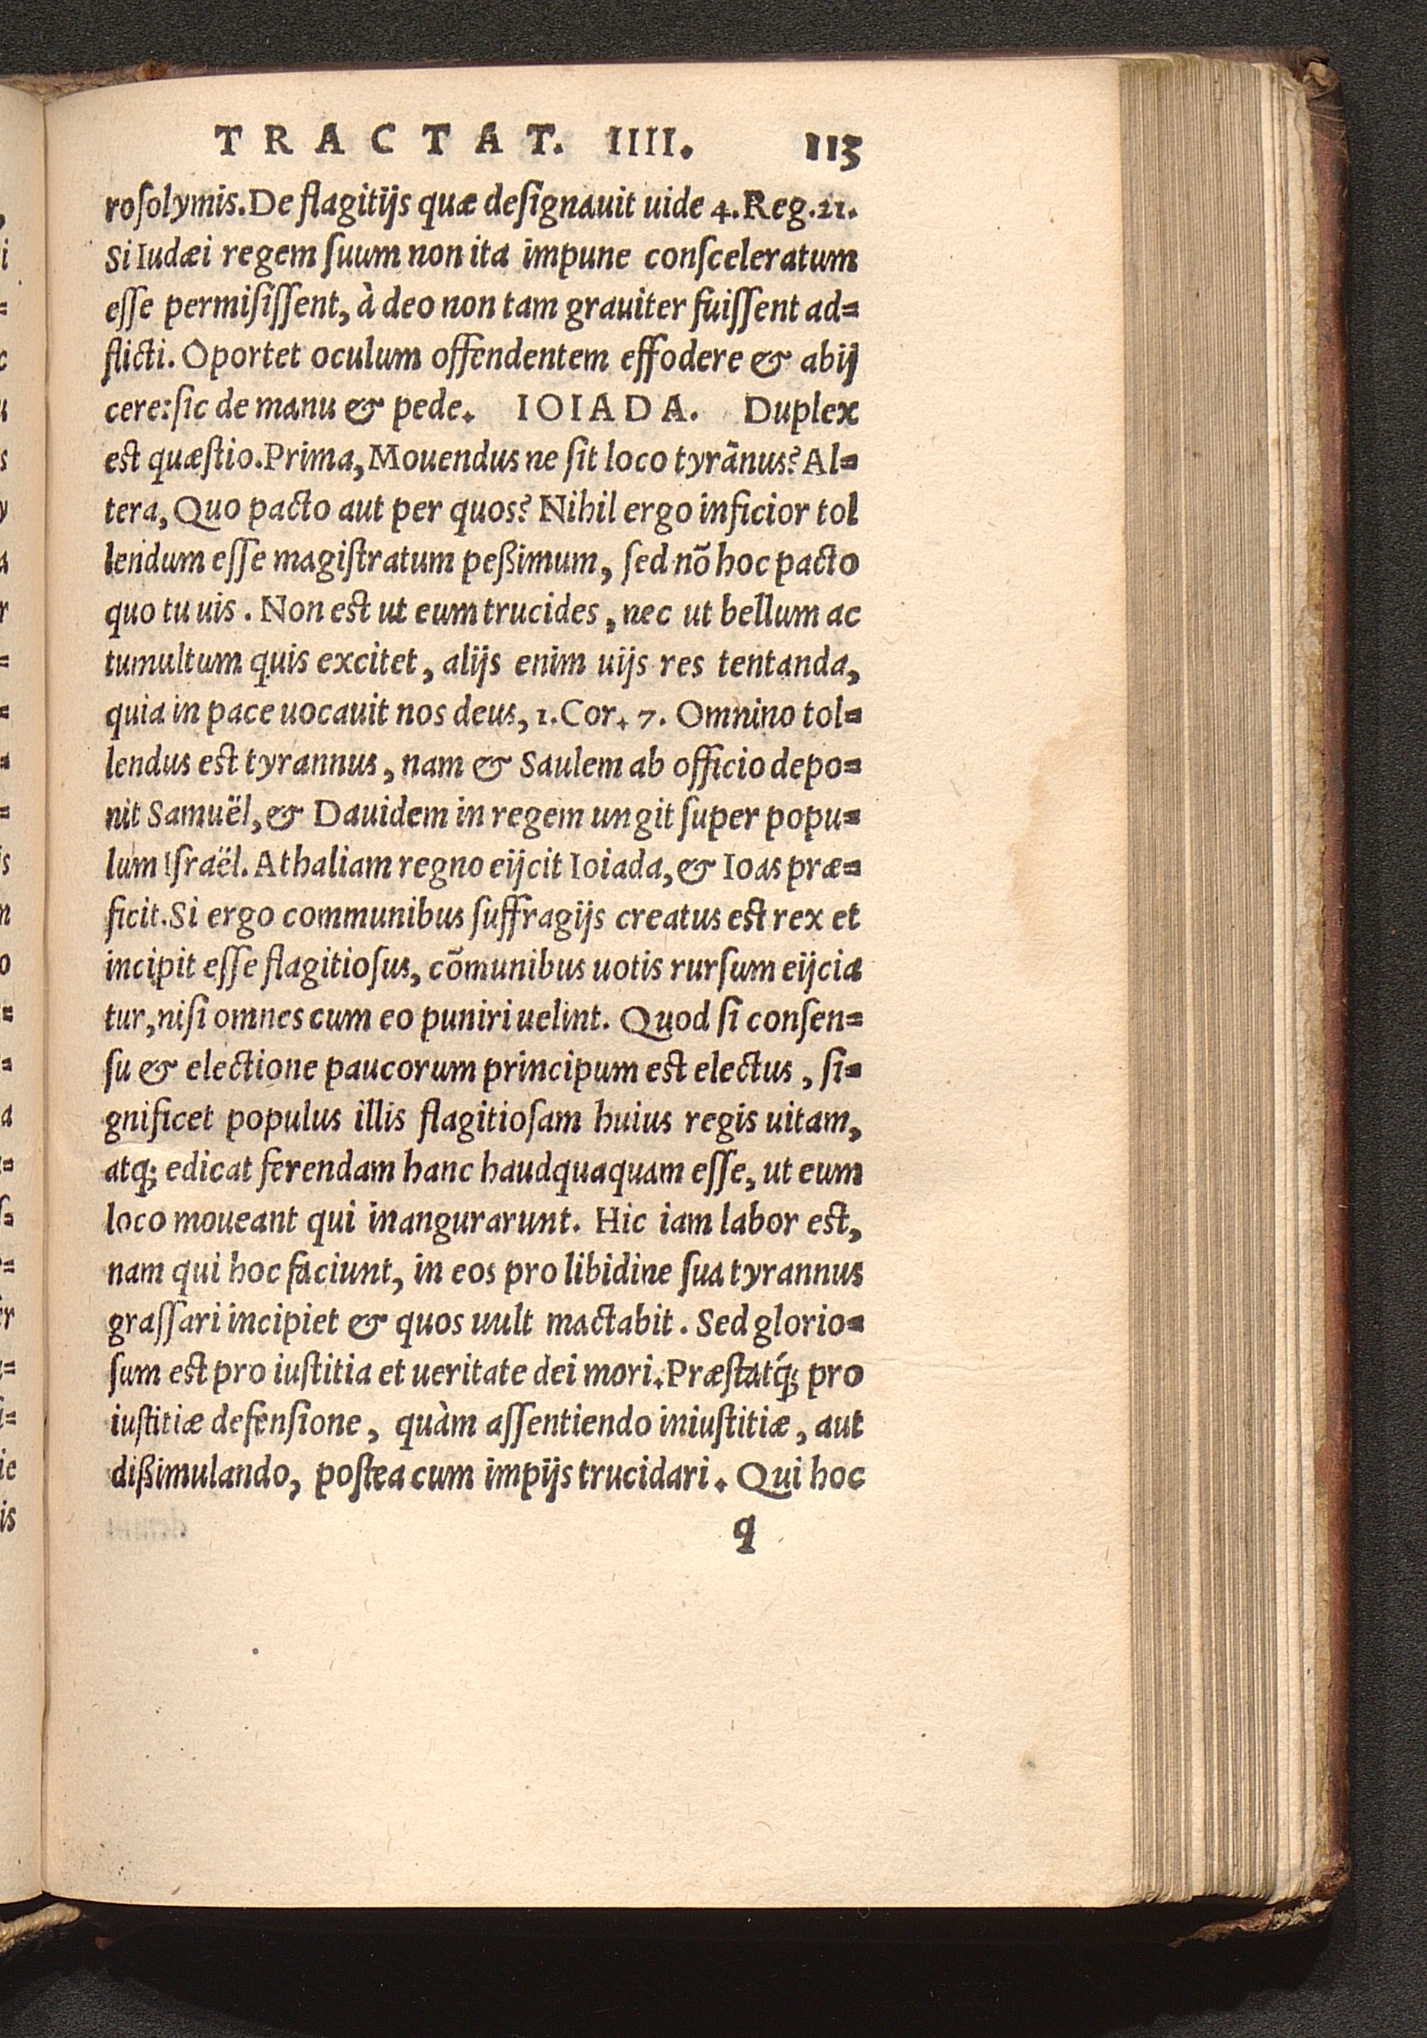 TRACTAT. IIII. 113
roſolymis. De flagitijs quæ deſignauit uide 4. Reg. 21.
Si Iudæi regem ſuum non ita impune conſceleratum
eſſe permiſiſſent, à deo non tam grauiter fuiſſent ad=
flicti. Oportet oculum offendentem effodere & abij
cere: ſic de manu & pede. IOIADA. Duplex
est quæſtio. Prima, Mouendus ne ſit loco tyrãnus? Al=
tera, Quo pacto aut per quos? Nihil ergo inficior tol
lendum eſſe magiſtratum peßimum, ſed nõ hoc pacto
quo tu uis. Non est ut eum trucides, nec ut bellum ac
tumultum quis excitet, alijs enim uijs res tentanda,
quia in pace uocauit nos deus, 1. Cor. 7. Omnino tol=
lendus est tyrannus, nam & Saulem ab officio depo=
nit Samuël, & Dauidem in regem ungit ſuper popu=
lum Iſraël. Athaliam regno eijcit Ioiada, & Ioas præ=
ficit. Si ergo communibus ſuffragijs creatus est rex et
incipit eſſe flagitioſus, cõmunibus uotis rurſum eijcia
tur, niſi omnes cum eo puniri uelint. Quod ſi conſen=
ſu & electione paucorum principum est electus, ſi=
gnificet populus illis flagitioſam huius regis uitam,
atq; edicat ferendam hanc haudquaquam eſſe, ut eum
loco moueant qui inangurarunt. Hic iam labor est,
nam qui hoc faciunt, in eos pro libidine ſua tyrannus
graſſari incipiet & quos uult mactabit. Sed glorio=
ſum est pro iuſtitia et ueritate dei mori. Præſtatq́; pro
iuſtitiæ defenſione, quàm aſſentiendo iniuſtitiæ, aut
dißimulando, poſtea cum impijs trucidari. Qui hoc
q